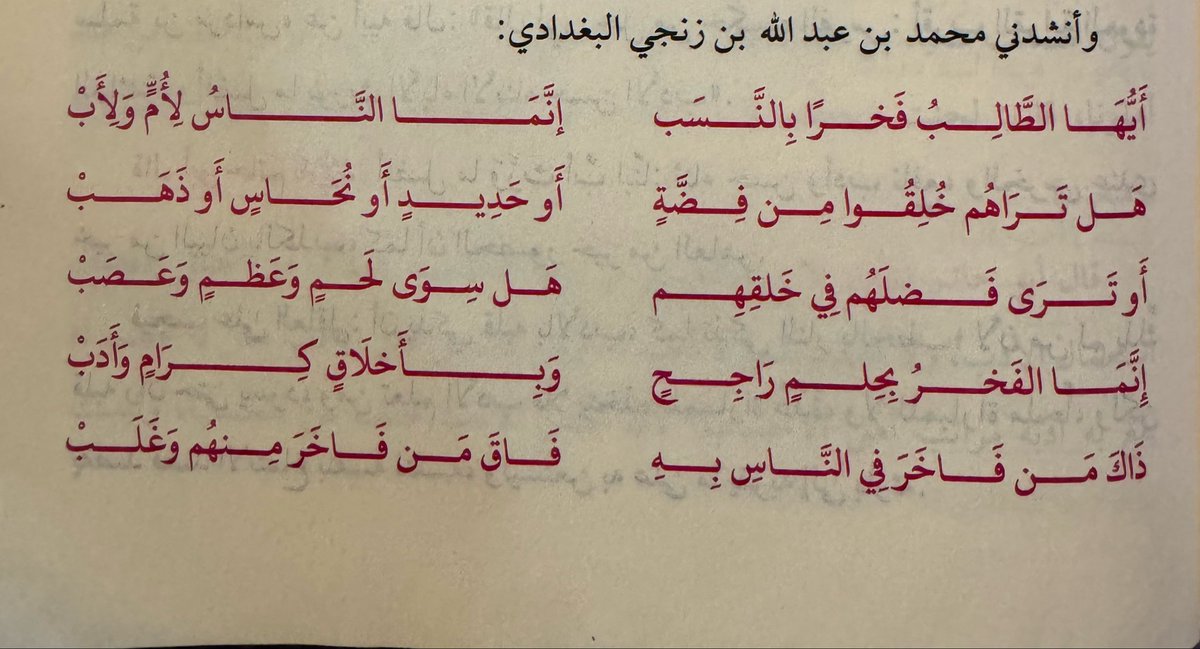 وأنشدني محمد بن عبد الله بن زنجي البغدادي:
أَيُّهَا الطَّالِبُ فَخرًا بِالنَّسَب إنَّمَا النَّاسُ لِأُمٍّ وَلِأَبْ
هَل تَرَاهُم خُلِقُوا مِن فِضَّةٍ أَو حَدِيدٍ أَو نُحَاسٍ أَو ذَهَبْ
أَو تَرَى فَضلَهُم فِي خَلقِهِم هَل سِوَى لَحمٍ وَعَظمٍ وَعَصَبْ
إِنَّمَا الفَخرُ بِحِلمٍ رَاجِحٍ وَبِأَخلَاقٍ كِرَامٍ وَأَدَبْ
ذَاكَ مَن فَاخَرَ فِي النَّاسِ بِهِ فَاقَ مَن فَاخَرَ مِنهُم وَغَلَبْ